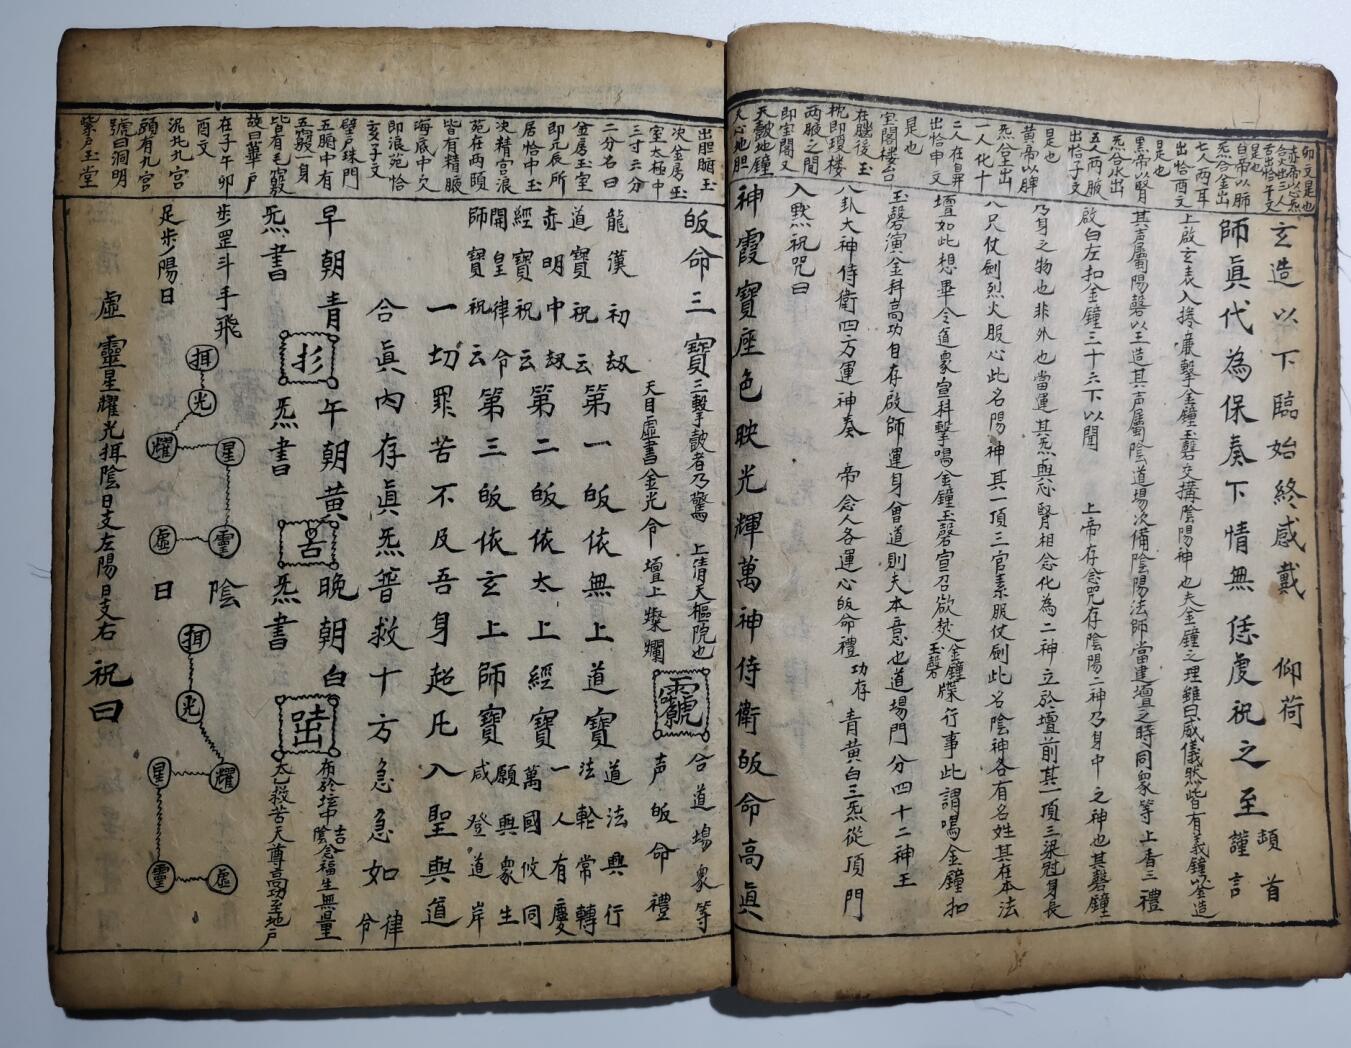 卯文是也
赤帝以心炁
合火出三人
舌出恰午文
是也
白帝以肺
炁合金出
七人兩耳
出恰酉文
是也
黑帝以腎
炁合水出
五人兩腋
出恰子文
是也
黃帝以脾
炁合皇出
一人化十
二人在昇
出恰申文
是也
室閣樓台
在腦後玉
枕即瓊樓
兩腋之間
即室閣文
天皷地鐘
天心地胆
玄造以下臨始終感戴 仰荷
師眞代為保奏下情無恁虔祝之至 頓首謹言
上啟玄表入捲簾擊金鐘玉磬交搆陰陽神也夫金鐘之理雖曰威儀然皆有義鐘以金造
其声屬陽磬以玉造其声屬陰道場次備陰陽法師當建壇之時同衆等上香三禮
啟白左扣金鐘三十六下以聞 上帝存念咒存陰陽二神乃身中之神也其磬鐘
乃身之物也非外也當運其炁與心腎相念化為二神立於壇前其一頂三梁冠身長
八尺仗劍烈火服心此名陽神其一頂三官素服仗劍此名陰神各有名姓其在本法
壇如此想畢令道衆宣科擊鳴金鐘玉磬宣召欲焚金鐘玉磬牒行事此謂鳴金鐘扣
玉磬演金科高功自存啟師運身會道則夫本意也道場門分四十二神王
八卦大神侍衛四方運神奏 帝念人各運心皈命禮 功存 青黃白三炁從頂門
入默祝咒曰
神霞寶座色映光輝萬神侍衛皈命高眞
出胆腦玉
次金房玉
室太極中
三寸六分
二分名曰
金房玉室
即元辰所
居恰中玉
決精宮浪
苑在兩頤
皆有精腋
海底中欠
即浪苑恰
亥子文
壁戸珠門
五腑中有
五竅一身
皆有毛竅
故曰華戸
在子午卯
酉文
泥丸九宮
頭有九宮
號曰洞明
紫戸玉堂
皈命三寶三擊皷者乃驚 上清天樞院也 合道塲衆等
天目虛書金光令 壇上燦爛 声皈命禮
龍漢初刼
道寶祝云 第一皈依無上道寶 道法興行 法輪常轉
赤明中刼
經寶祝云 第二皈依太上經寶 一人有慶 萬國攸同
開皇律令
師寶祝云 第三皈依玄上師寶 願與衆生 咸登道岸
一切罪苦不及吾身超凡入聖與道
合眞內存眞炁普救十方急急如律令
早朝青 午朝黃 晚朝白 布於坛中 隂念福生無量
炁書 炁書 炁書 太乙救苦天尊高功至地戸
步罡斗手飛
足步陽日
陰日
揖
光
耀
星
靈
虛
揖
光
耀
星
靈
虛
虛靈星耀光揖陰日支左陽日支右 祝曰